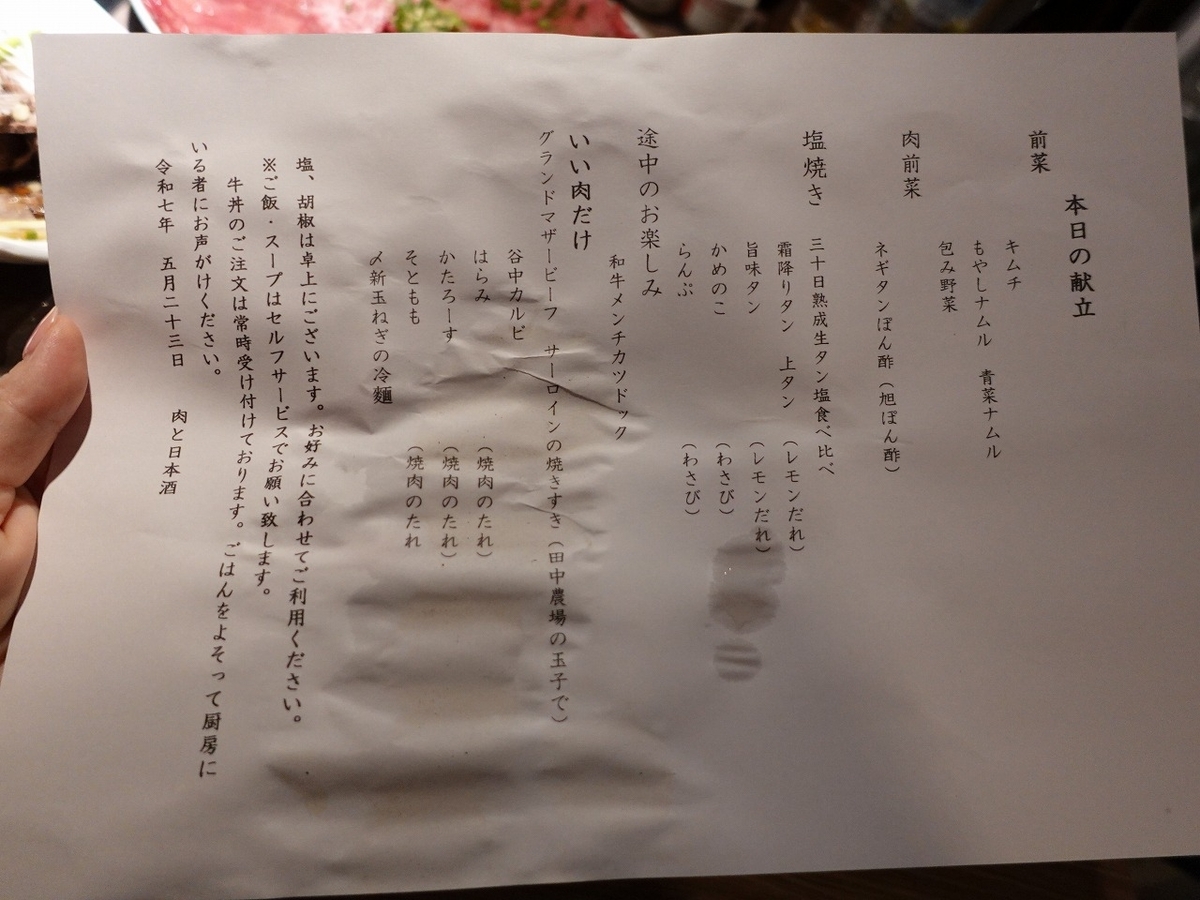 本日の献立
前菜
キムチ
もやしナムル　青菜ナムル
包み野菜
肉前菜
ネギタンぽん酢（旭ぽん酢）
塩焼き
三十日熟成生タン塩食べ比べ
霜降りタン　上タン　（レモンだれ）
旨味タン　（レモンだれ）
かめのこ　（わさび）
らんぷ　（わさび）
途中のお楽しみ
和牛メンチカツドック
いい肉だけ
グランドマザービーフ　サーロインの焼きすき（田中農場の玉子で）
谷中カルビ
はらみ　（焼肉のたれ）
かたろーす　（焼肉のたれ）
そともも　（焼肉のたれ
〆新玉ねぎの冷麺
塩、胡椒は卓上にございます。お好みに合わせてご利用ください。
※ご飯・スープはセルフサービスでお願い致します。
牛丼のご注文は常時受け付けております。ごはんをよそって厨房に
いる者にお声がけください。
令和七年　五月二十三日　肉と日本酒